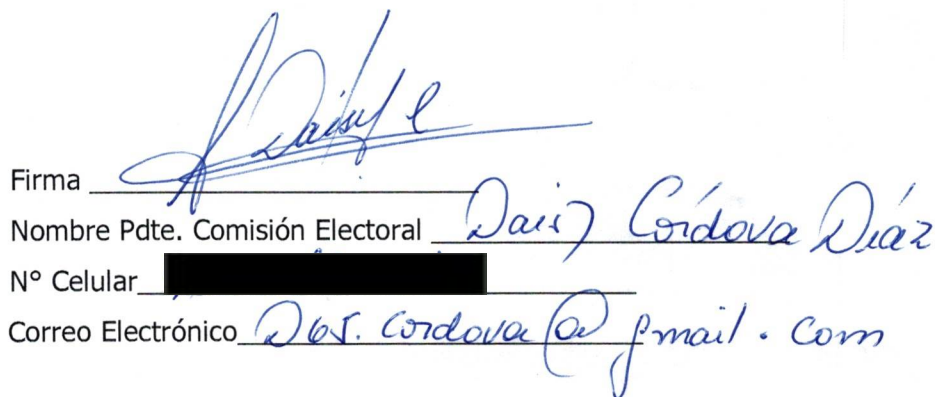 Firma Daisy C
Nombre Pdte. Comisión Electoral Daisy Córdova Díaz
N° Celular
Correo Electrónico cordova@gmail.com